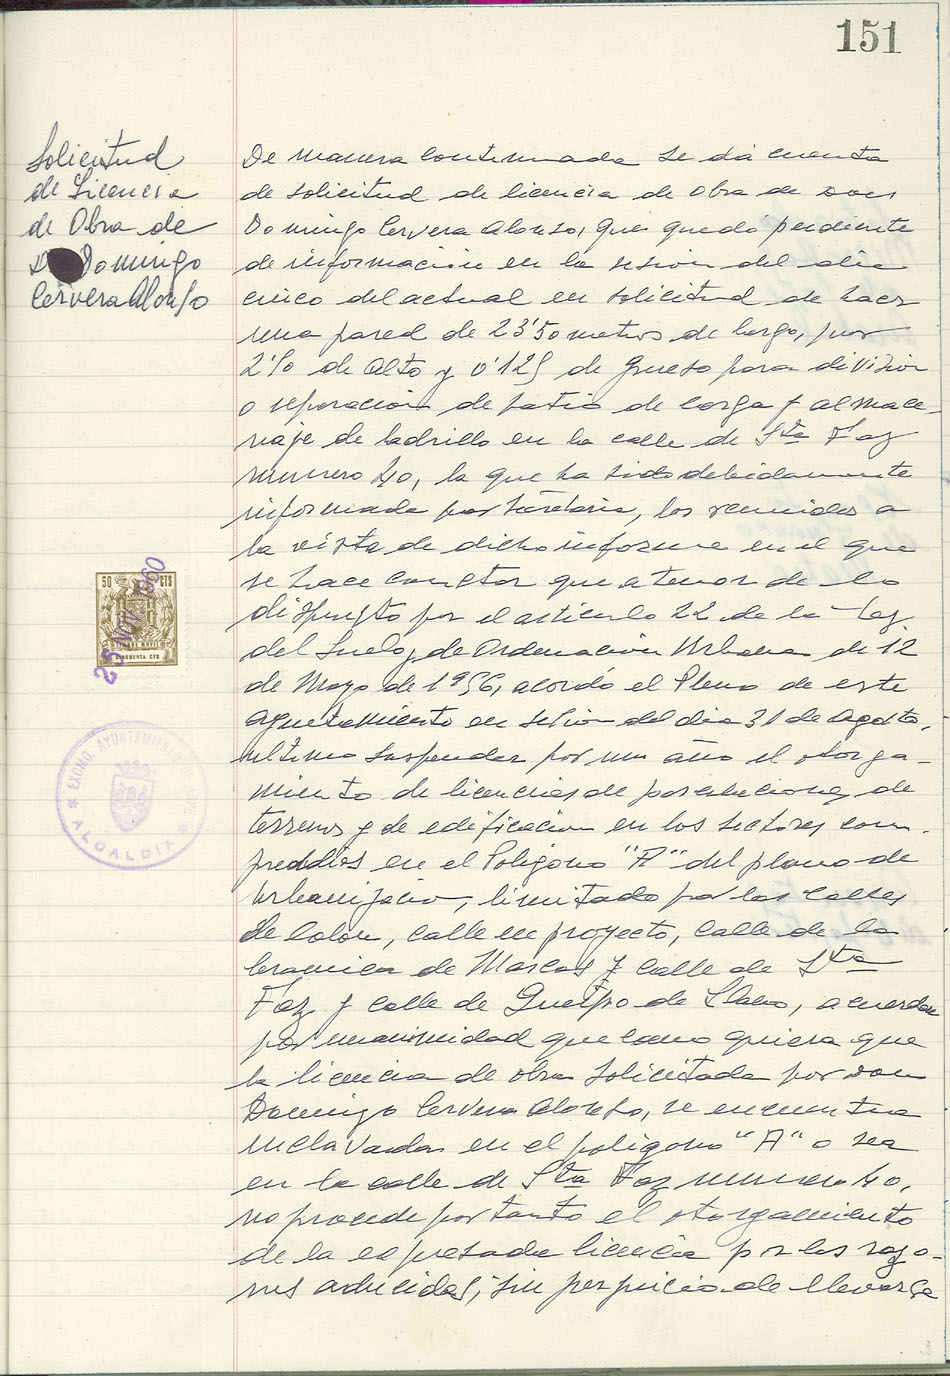 151
Solicitud
de Licencia
de Obra de
D Domingo
Cervera Alonso
De manera continuada se dá cuenta
de solicitud de licencia de Obra de Don
Domingo Cervera Alonso, que quedó pendiente
de información en la sesion del dia
cinco del actual en solicitud de hacer
una pared de 23'50 metros de largo, por
2'10 de alto y 0'125 de grueso para división
o separación de patio de carga y almace-
naje de ladrillo en la calle de Sta Faz
numero 40, la que ha sido debidamente
informada por Secretaria, los reunidos a
la vista de dicho informe en el que
se hace constar que a tenor de lo
dispuesto por el artículo 22 de la Ley
del Suelo y de Ordenación Urbana de 12
de Mayo de 1956, acordó el Pleno de este
Ayuntamiento en sesion del dia 31 de Agosto,
ultimo suspender por un año el otorga-
miento de licencias de parcelaciones de
terrenos y de edificacion en los sectores com-
prendidos en el Poligono "A" del plano de
Urbanizacion, limitado por las calles
de Colón, calle en proyecto, calle de la
Ceramica de Marcos y calle de Sta
Faz y calle de Queipo de Llano, acuerdan
por unanimidad que como quiera que
la licencia de obra solicitada por Don
Domingo Cervera Alonso, se encuentra
enclavada en el poligono "A" o sea
en la calle de Sta Faz numero 40,
no procede por tanto el otorgamiento
de la expresada licencia por las razo-
nes aducidas, sin perjuicio de llevarse
50 CTS
MOVIL
CINCUENTA CTS
25 NOV 1960
EXCMO. AYUNTAMIENTO
ALCALDIA